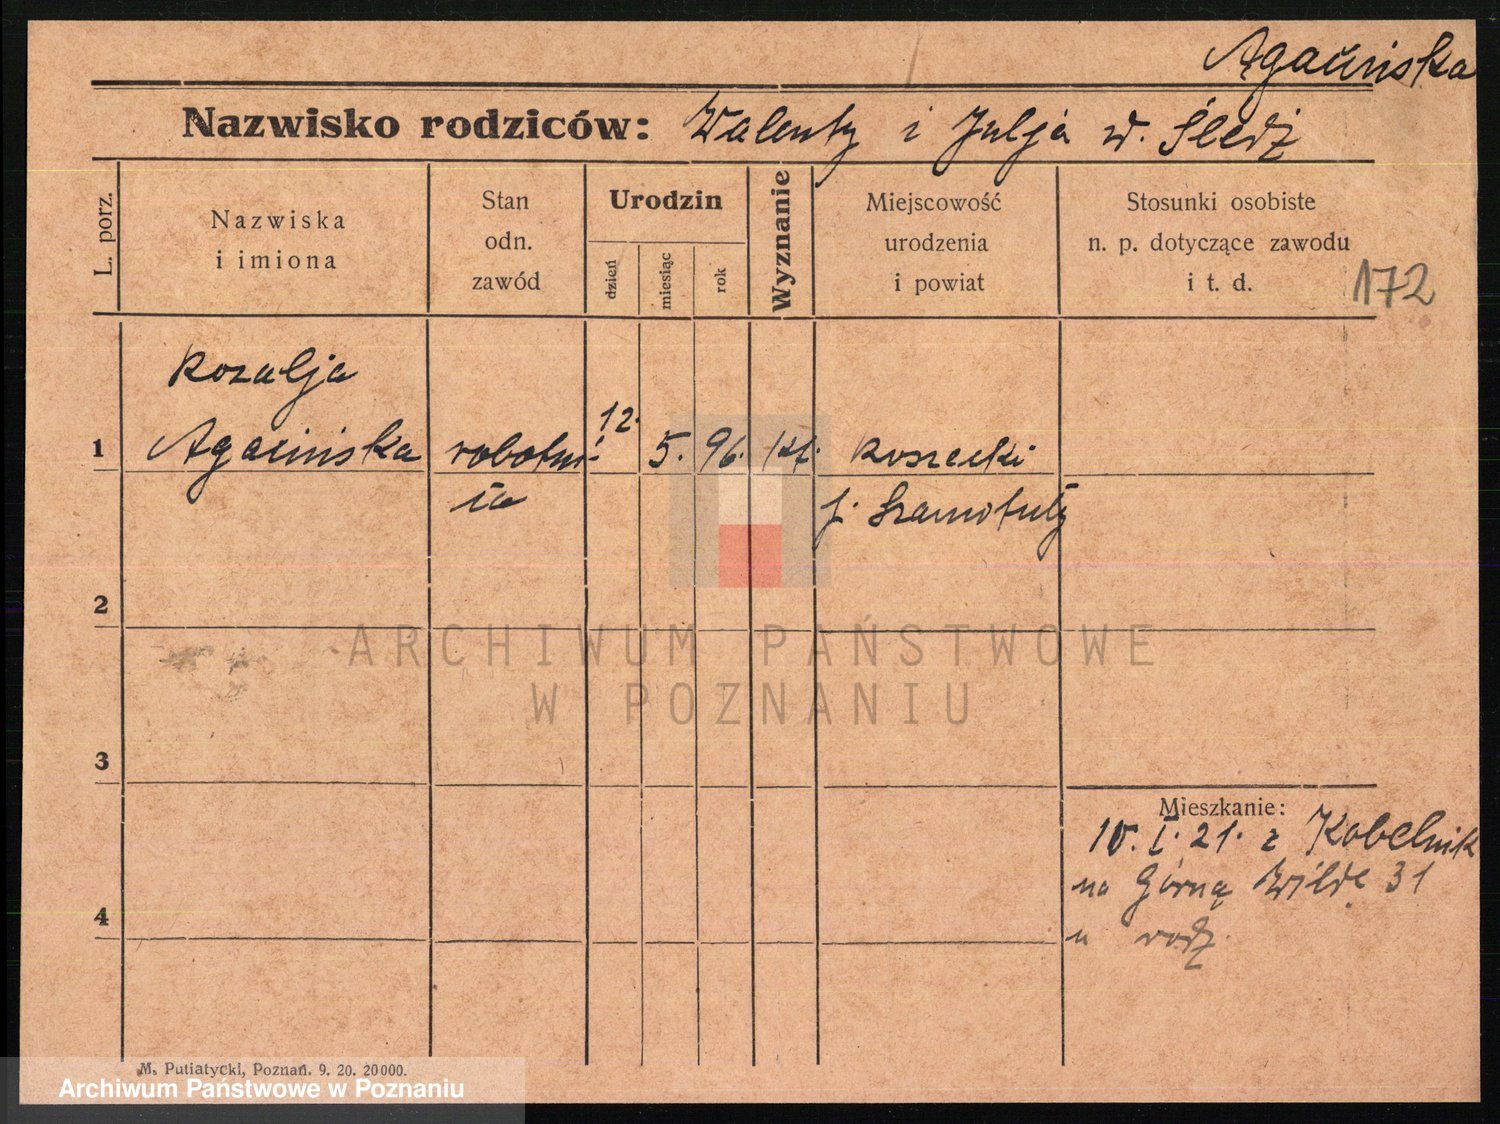 Agacińska
Nazwisko rodziców: Walenty i Julja w. Śledź
L. porz.
Nazwiska
i imiona
Stan
odn.
zawód
Urodzin
dzień
miesiąc
rok
Wyznanie
Miejscowość
urodzenia
i powiat
Stosunki osobiste
n. p. dotyczące zawodu
i t. d.
172
Rozalja
1 Agacińska robotni- 12. 5. 96. kt.
p. Szamotuły
2
3
4
Mieszkanie:
10. I. 21. z Kobelnik
na Górną Wildę 31
u rodz.
ARCHIWUM PAŃSTWOWE
W POZNANIU
M. Putiatycki, Poznań. 9. 20. 20000.
Archiwum Państwowe w Poznaniu